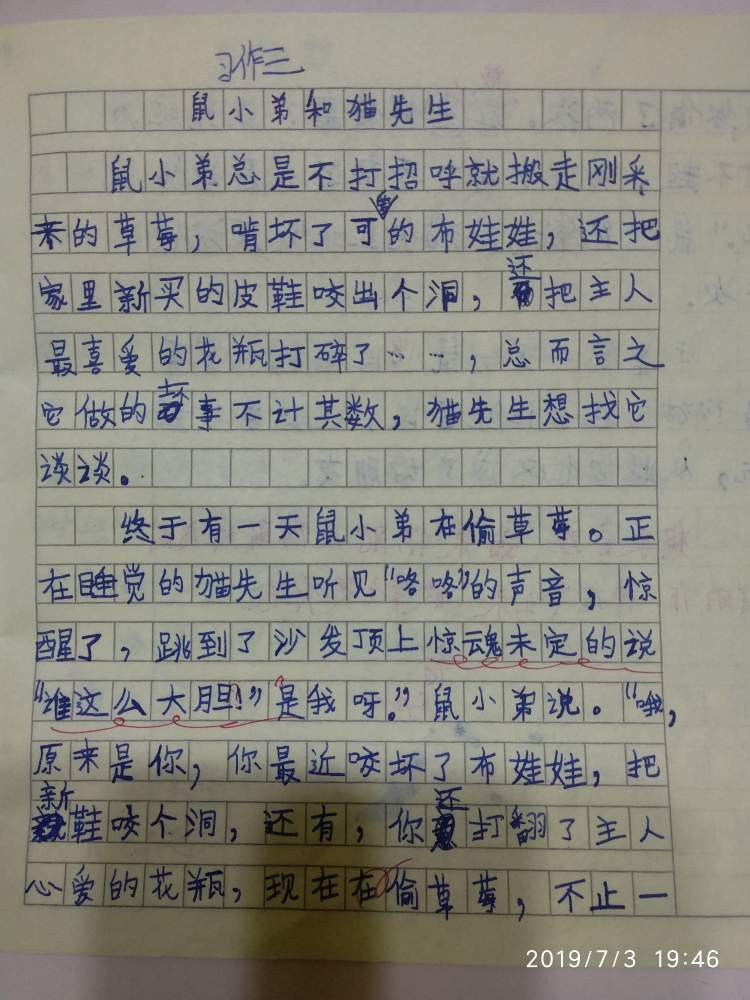 习作三
鼠小弟和猫先生
鼠小弟总是不打招呼就搬走刚采
来的草莓，啃坏了可爱的布娃娃，还把
家里新买的皮鞋咬出个洞，还把主人
最喜爱的花瓶打碎了……，总而言之
它做的坏事不计其数，猫先生想找它
谈谈。
终于有一天鼠小弟在偷草莓。正
在睡觉的猫先生听见“咯咯”的声音，惊
醒了，跳到了沙发顶上惊魂未定的说
“谁这么大胆！”“是我呀。”鼠小弟说。“哦，
原来是你，你最近咬坏了布娃娃，把
新鞋咬个洞，还有，你还打翻了主人
心爱的花瓶，现在在偷草莓，不止一
2019/7/3 19:46